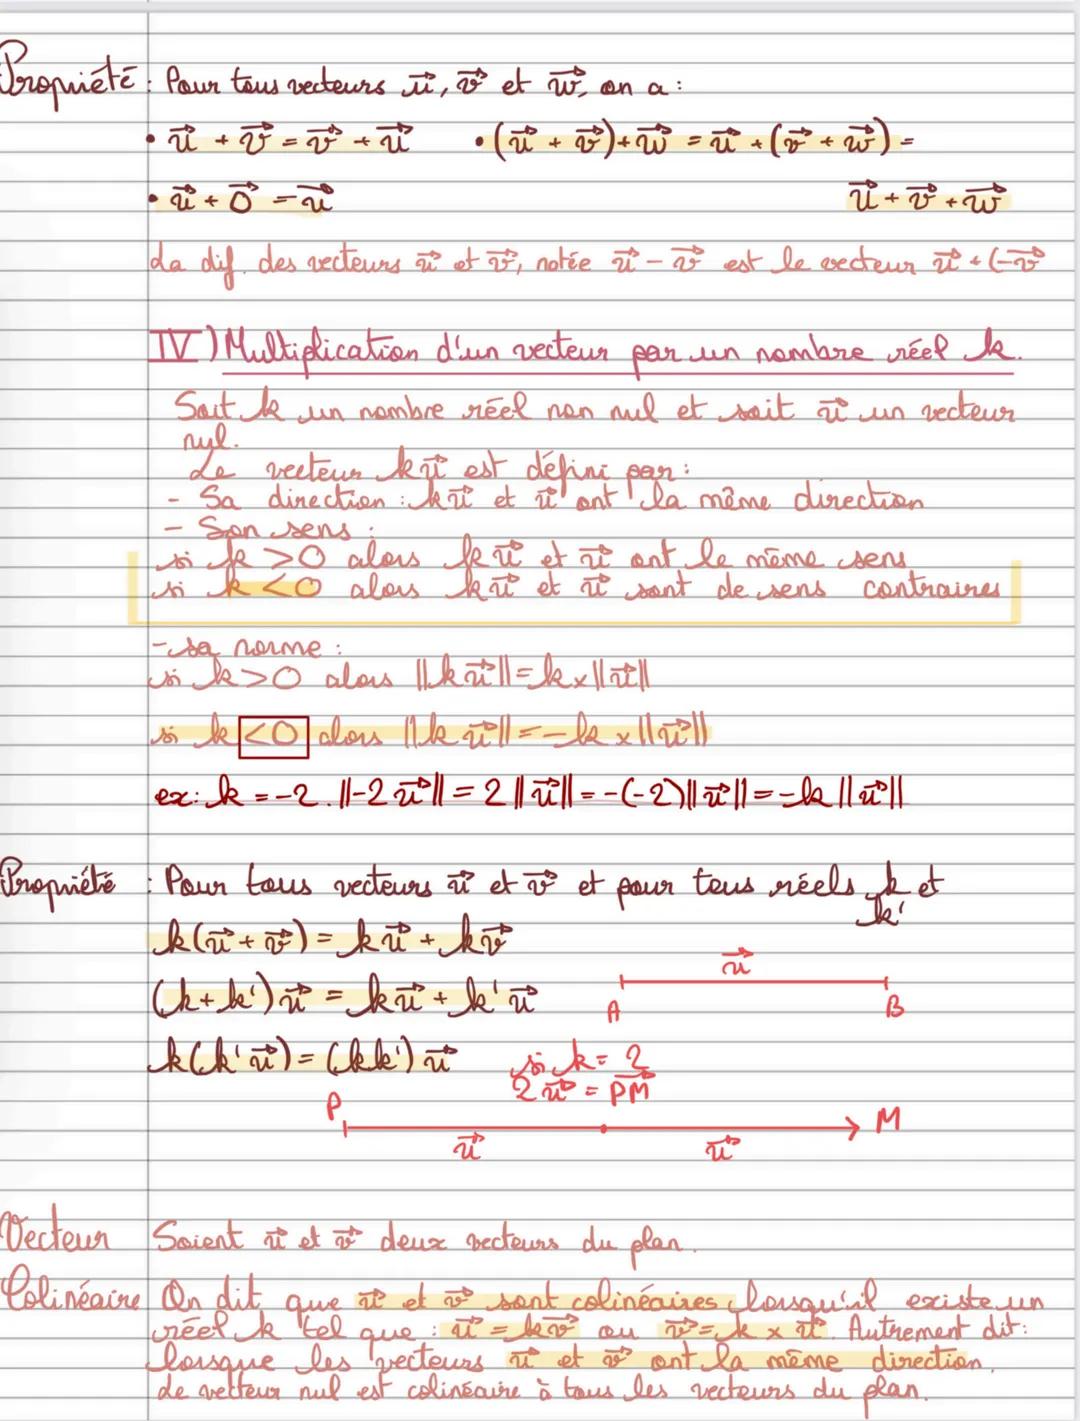 Propriété : Pour tous vecteurs u⃗, v⃗ et w⃗, on a :
• u⃗ + v⃗ = v⃗ + u⃗ • (u⃗ + v⃗) + w⃗ = u⃗ + (v⃗ + w⃗) =
• u⃗ + 0⃗ = u⃗ u⃗ + v⃗ + w⃗
La dif. des vecteurs u⃗ et v⃗, notée u⃗ - v⃗ est le vecteur u⃗ + (-v⃗
IV) Multiplication d'un vecteur par un nombre réel k.
Soit k un nombre réel non nul et soit u⃗ un vecteur
nul.
Le vecteur ku⃗ est défini par :
- Sa direction : ku⃗ et u⃗ ont la même direction
- Son sens :
si k > 0 alors ku⃗ et u⃗ ont le même sens
si k < 0 alors ku⃗ et u⃗ sont de sens contraires
- sa norme :
si k > 0 alors ||ku⃗|| = k x ||u⃗||
si k < 0 alors ||k u⃗|| = -k x ||u⃗||
ex: k = -2. ||-2 u⃗|| = 2 ||u⃗|| = -(-2)||u⃗|| = -k ||u⃗||
Propriété : Pour tous vecteurs u⃗ et v⃗ et pour tous réels k et
k'
k(u⃗ + v⃗) = ku⃗ + kv⃗
u⃗
(k+k')u⃗ = ku⃗ + k'u⃗
A B
k(k'u⃗) = (kk')u⃗ si k = 2
2u⃗ = PM⃗
P M
u⃗ u⃗
Vecteur Soient u⃗ et v⃗ deux vecteurs du plan.
Colinéaire On dit que u⃗ et v⃗ sont colinéaires lorsqu'il existe un
réel k tel que : u⃗ = kv⃗ ou v⃗ = k x u⃗. Autrement dit :
lorsque les vecteurs u⃗ et v⃗ ont la même direction.
Le vecteur nul est colinéaire à tous les vecteurs du plan.